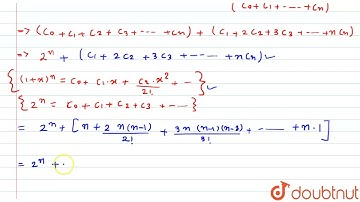 (C0 + C1 + ---- + Cn)
=> (C0 + C1 + C2 + C3 + --- + Cn) + (C1 + 2C2 + 3C3 + --- + nCn)
=> 2^n + (C1 + 2C2 + 3C3 + ---- + nCn) ✓
{(1+x)^n = C0 + C1·x + C2·x^2/2! + -- } ✓
{2^n = C0 + C1 + C2 + C3 + --- }
= 2^n + [n + 2 n(n-1)/2! + 3n (n-1)(n-2)/3! + --- + n·1]
= 2^n + ·
doubtnut